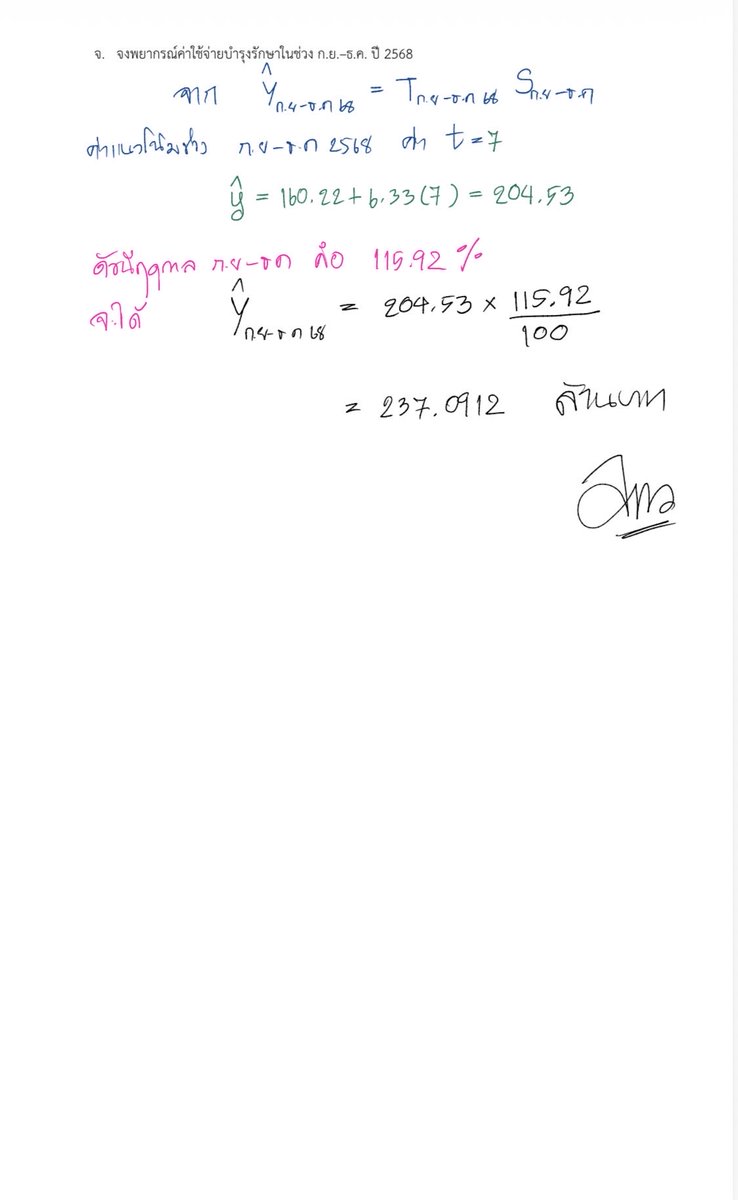 จ. จงพยากรณ์ค่าใช้จ่ายบำรุงรักษาในช่วง ก.ย.–ธ.ค. ปี 2568
จาก Ŷก.ย-ธ.ค 68 = Tก.ย-ธ.ค 68 Sก.ย-ธ.ค
ค่าแนวโน้มช่วง ก.ย-ธ.ค 2568 ค่า t = 7
ŷ = 160.22 + 6.33(7) = 204.53
ดัชนีฤดูกาล ก.ย-ธค คือ 115.92 %
จะได้ Ŷก.ย-ธค 68 = 204.53 × 115.92/100
= 237.0912 ล้านบาท